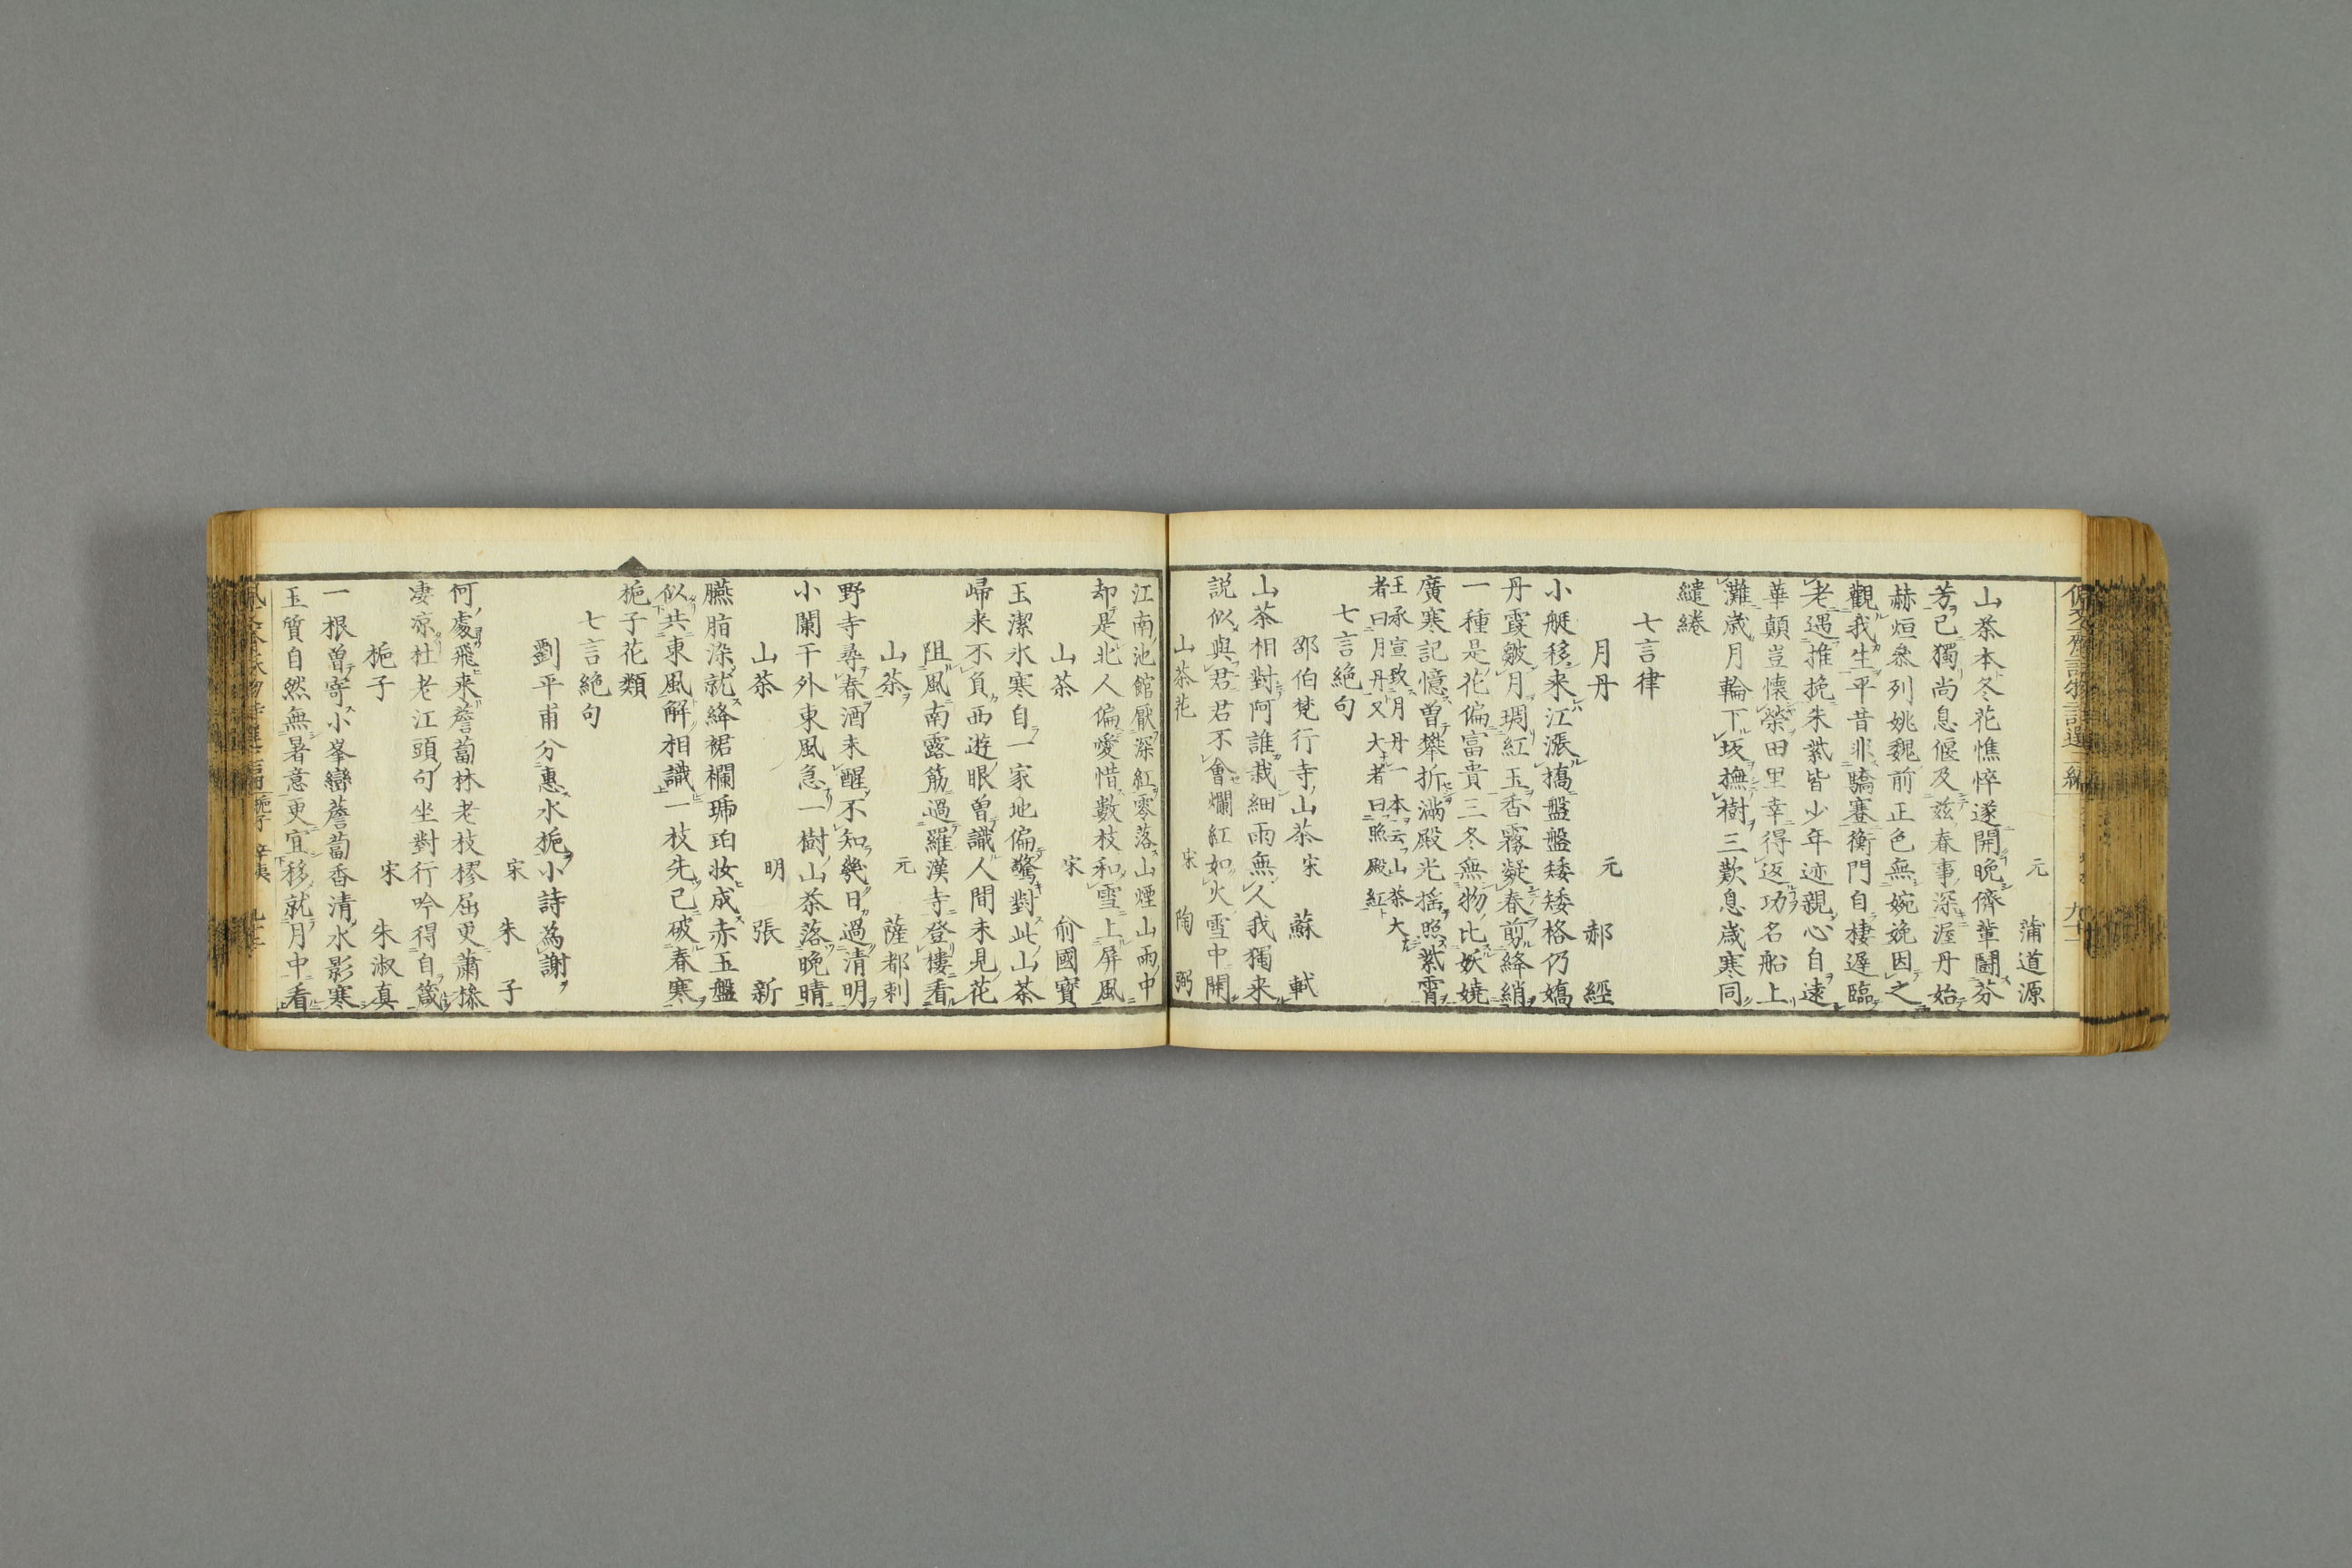 元 蒲道源
山茶本冬花憔悴遂開晚儕輩鬪芬
芳己獨尚息偃及茲春事深渥丹始
赫烜衆列姚魏前正色無婉娩因之
觀我生平昔非驕蹇衡門自棲遲臨
老遇推挽朱紫皆少年迹親心自遠
華顛豈懷榮田里幸得返功名船上
灘歲月輪下坂撫樹三歎息歲寒同
繾綣
七言律
月丹 元 郝經
小艇移来江漲橋盤盤矮矮格仍嬌
丹霞皺月琱紅玉香霧凝春剪絳綃
一種是花偏富貴三冬無物比妖嬈
廣寒記憶曽攀折滿殿光揺照紫霄
王承宣致月丹一本云山茶大
者曰月丹又大者曰照殿紅
七言絶句
邵伯梵行寺山茶 宋 蘇軾
山茶相對阿誰栽細雨無人我獨来
説似與君君不會爛紅如火雪中開
山茶花 宋 陶弼
江南池館厭深紅零落山煙山雨中
却是北人偏愛惜數枝和雪上屏風
山茶 宋 俞國寶
玉潔氷寒自一家地偏驚對此山茶
歸来不負西遊眼曽識人間未見花
阻風南露筋過羅漢寺登樓看
山茶 元 薩都剌
野寺尋春酒未醒不知幾日過清明
小闌干外東風急一樹山茶落晚晴
山茶 明 張新
臙脂染就絳裙欄琥珀妝成赤玉盤
似共東風解相識一枝先已破春寒
梔子花類
七言絶句
劉平甫分惠水梔小詩為謝
宋 朱子
何處飛来薝蔔林老枝樛屈更蕭槮
凄凉杜老江頭句坐對行吟得自箴
梔子 宋 朱淑真
一根曽寄小峯巒薝蔔香清水影寒
玉質自然無暑意更宜移就月中看